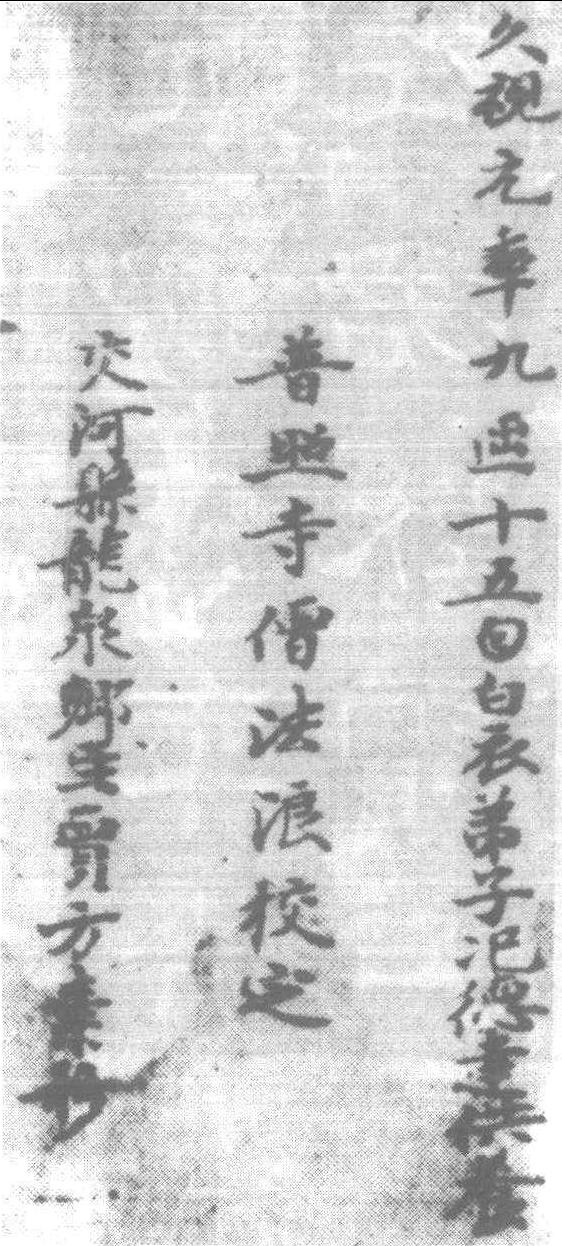 久視元𠡦九𠥱十五𡆠白衣弟子氾德達供養
普照寺僧法浪校定
交河縣龍泉鄉𤯔賈方素抄